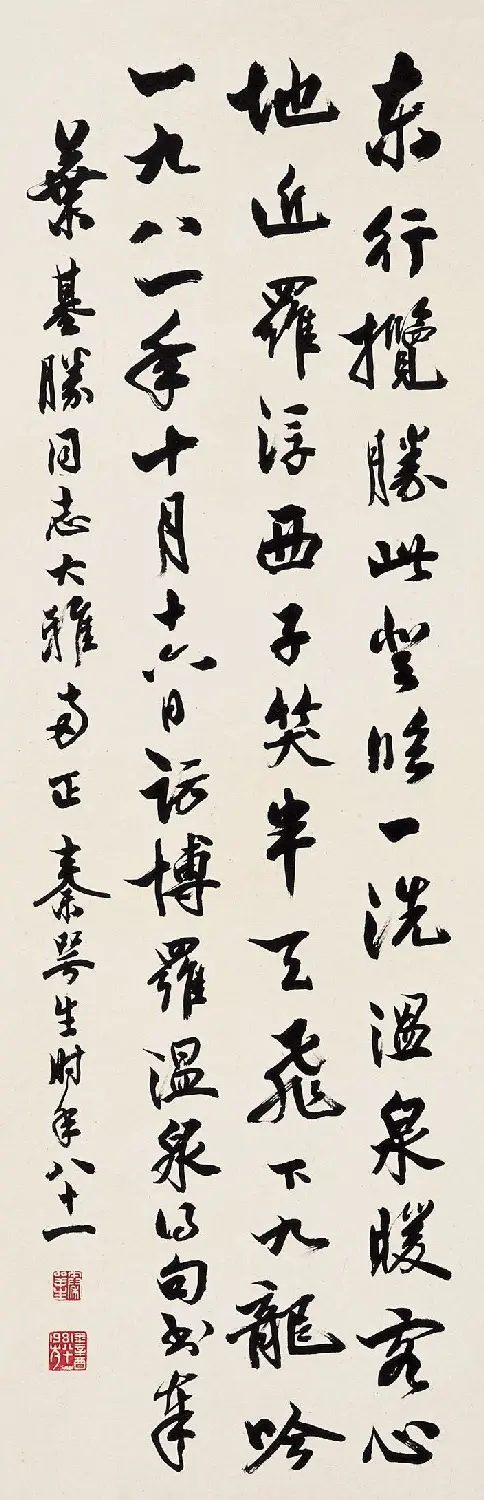 东行攬勝此登临一洗温泉暖客心
地近羅浮西子笑半天飛下九龍吟
一九八一年十月十六日訪博羅温泉得句书奉
葉基勝同志大雅正 秦咢生时年八十一